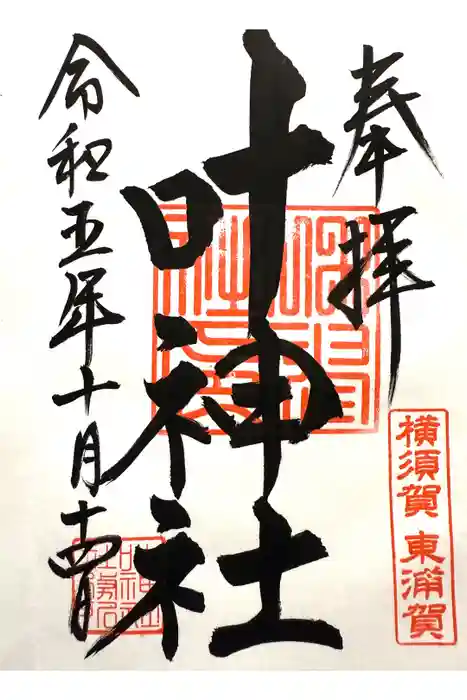 奉拝
横須賀 東浦賀
叶神社
令和五年十月十四日